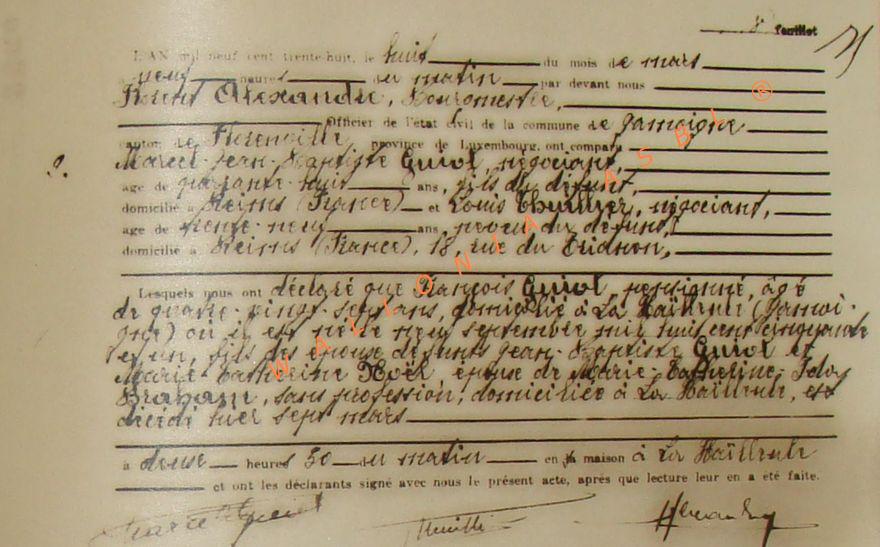 8 feuillet
L'AN mil neuf cent trente-huit, le huit du mois de mars
à neuf heures du matin par devant nous
Alexandre, Bourgmestre,
Officier de l'état civil de la commune de Jamoigne
canton de Florenville, province de Luxembourg, ont comparu
9. Marcel-Jean-Baptiste Guiot, négociant,
agé de quarante-huit ans, fils du défunt,
domicilié à Reims (France) et Louis Thuillier, négociant,
agé de trente-neuf ans, neveu du défunt,
domicilié à Reims (France), 18, rue du Trianon,
Lesquels nous ont déclaré que François Guiot, pensionné, âgé
de quatre-vingt-sept ans, domicilié à La Haïlleule (Jamoi-
gne) où il est né le neuf septembre mil huit cent cinquante
et un, fils des époux défunts Jean-Baptiste Guiot et
Marie-Catherine Noël époux de Marie-Catherine-
sans profession, domiciliée à La Haïlleule, est
décédé hier sept mars
à douze heures 30 du matin en sa maison à La Haïlleule
et ont les déclarants signé avec nous le présent acte, après que lecture leur en a été faite.
Marcel Guiot Thuillier Alexandre
WALLONIA ASBL ®